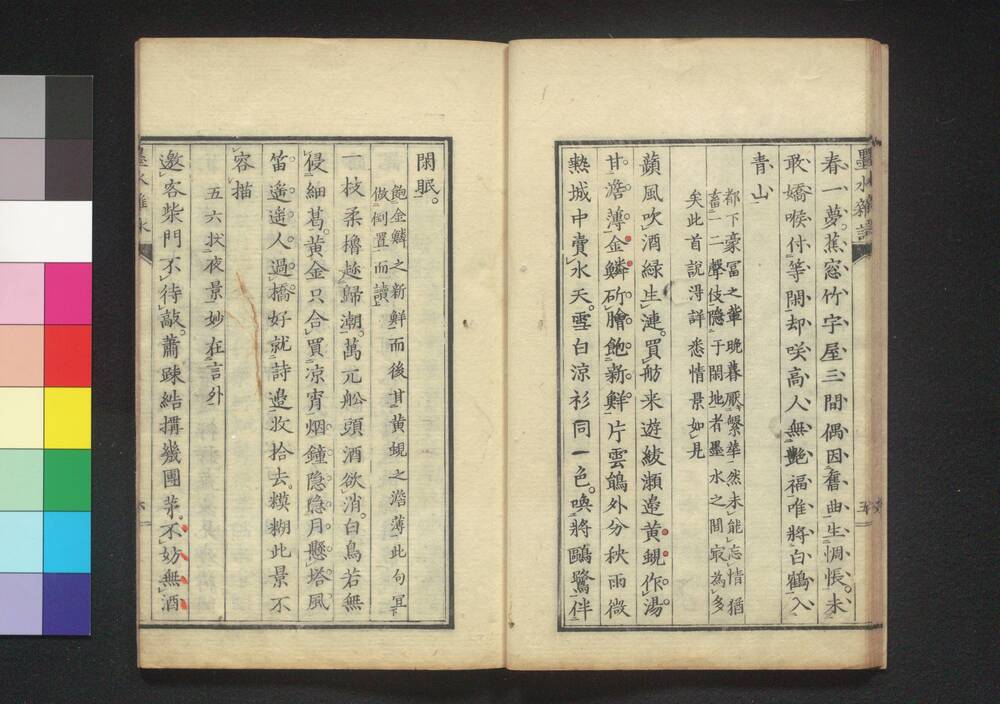 墨水雜詠
春一夢蕉窓竹字屋三間偶因奮曲生惆悵未
敢嬌喉付等閑却咲高人無艶福唯將白鶴入
青山
都下豪冨之輩晩暮厭繁華然未能忘情猶
畜一二聲伎隠于閑地者墨水之間㝡為多
矣此首説得詳悉情景如見
蘋風吹酒緑生漣買舫来遊綾瀬邉黄蜆作湯
甘澹薄金鱗斫膾飽新鮮片雲鴿外分秧雨微
熱城中賣水天雪白涼衫同一色喚將鷗鷺伴
五
閑眠
飽金鱗之新鮮而後甘黄蜆之澹薄此句冝
做倒置而讀
一枝柔櫓趂歸潮萬瓦舩頭酒欲消白鳥若無
侵細葛黄金只合買凉宵烟鐘隠隠月懸塔風
笛遥遥人過橋好就詩邉收拾去糢糊此景不
容描
五六状夜景妙在言外
邀客柴門不待敲蕭踈結搆幾團茅不妨無酒
六